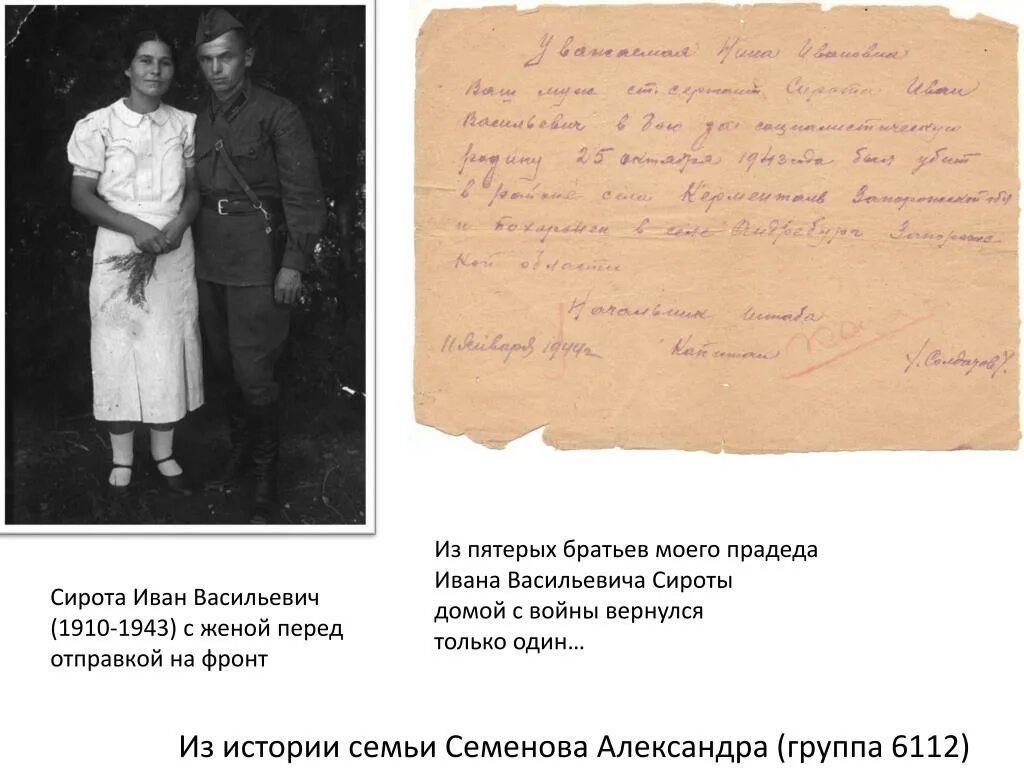 Уважаемая Нина Ивановна
Ваш муж ст. сержант Сирота Иван
Васильевич в бою за социалистическую
родину 25 октября 1943 года был убит
в районе села Запорожской обл
и похоронен в селе Запорожс
кой области
Начальник штаба
11 Января 1944г Капитан /Солдатов/.
Сирота Иван Васильевич
(1910-1943) с женой перед
отправкой на фронт
Из пятерых братьев моего прадеда
Ивана Васильевича Сироты
домой с войны вернулся
только один…
Из истории семьи Семенова Александра (группа 6112)